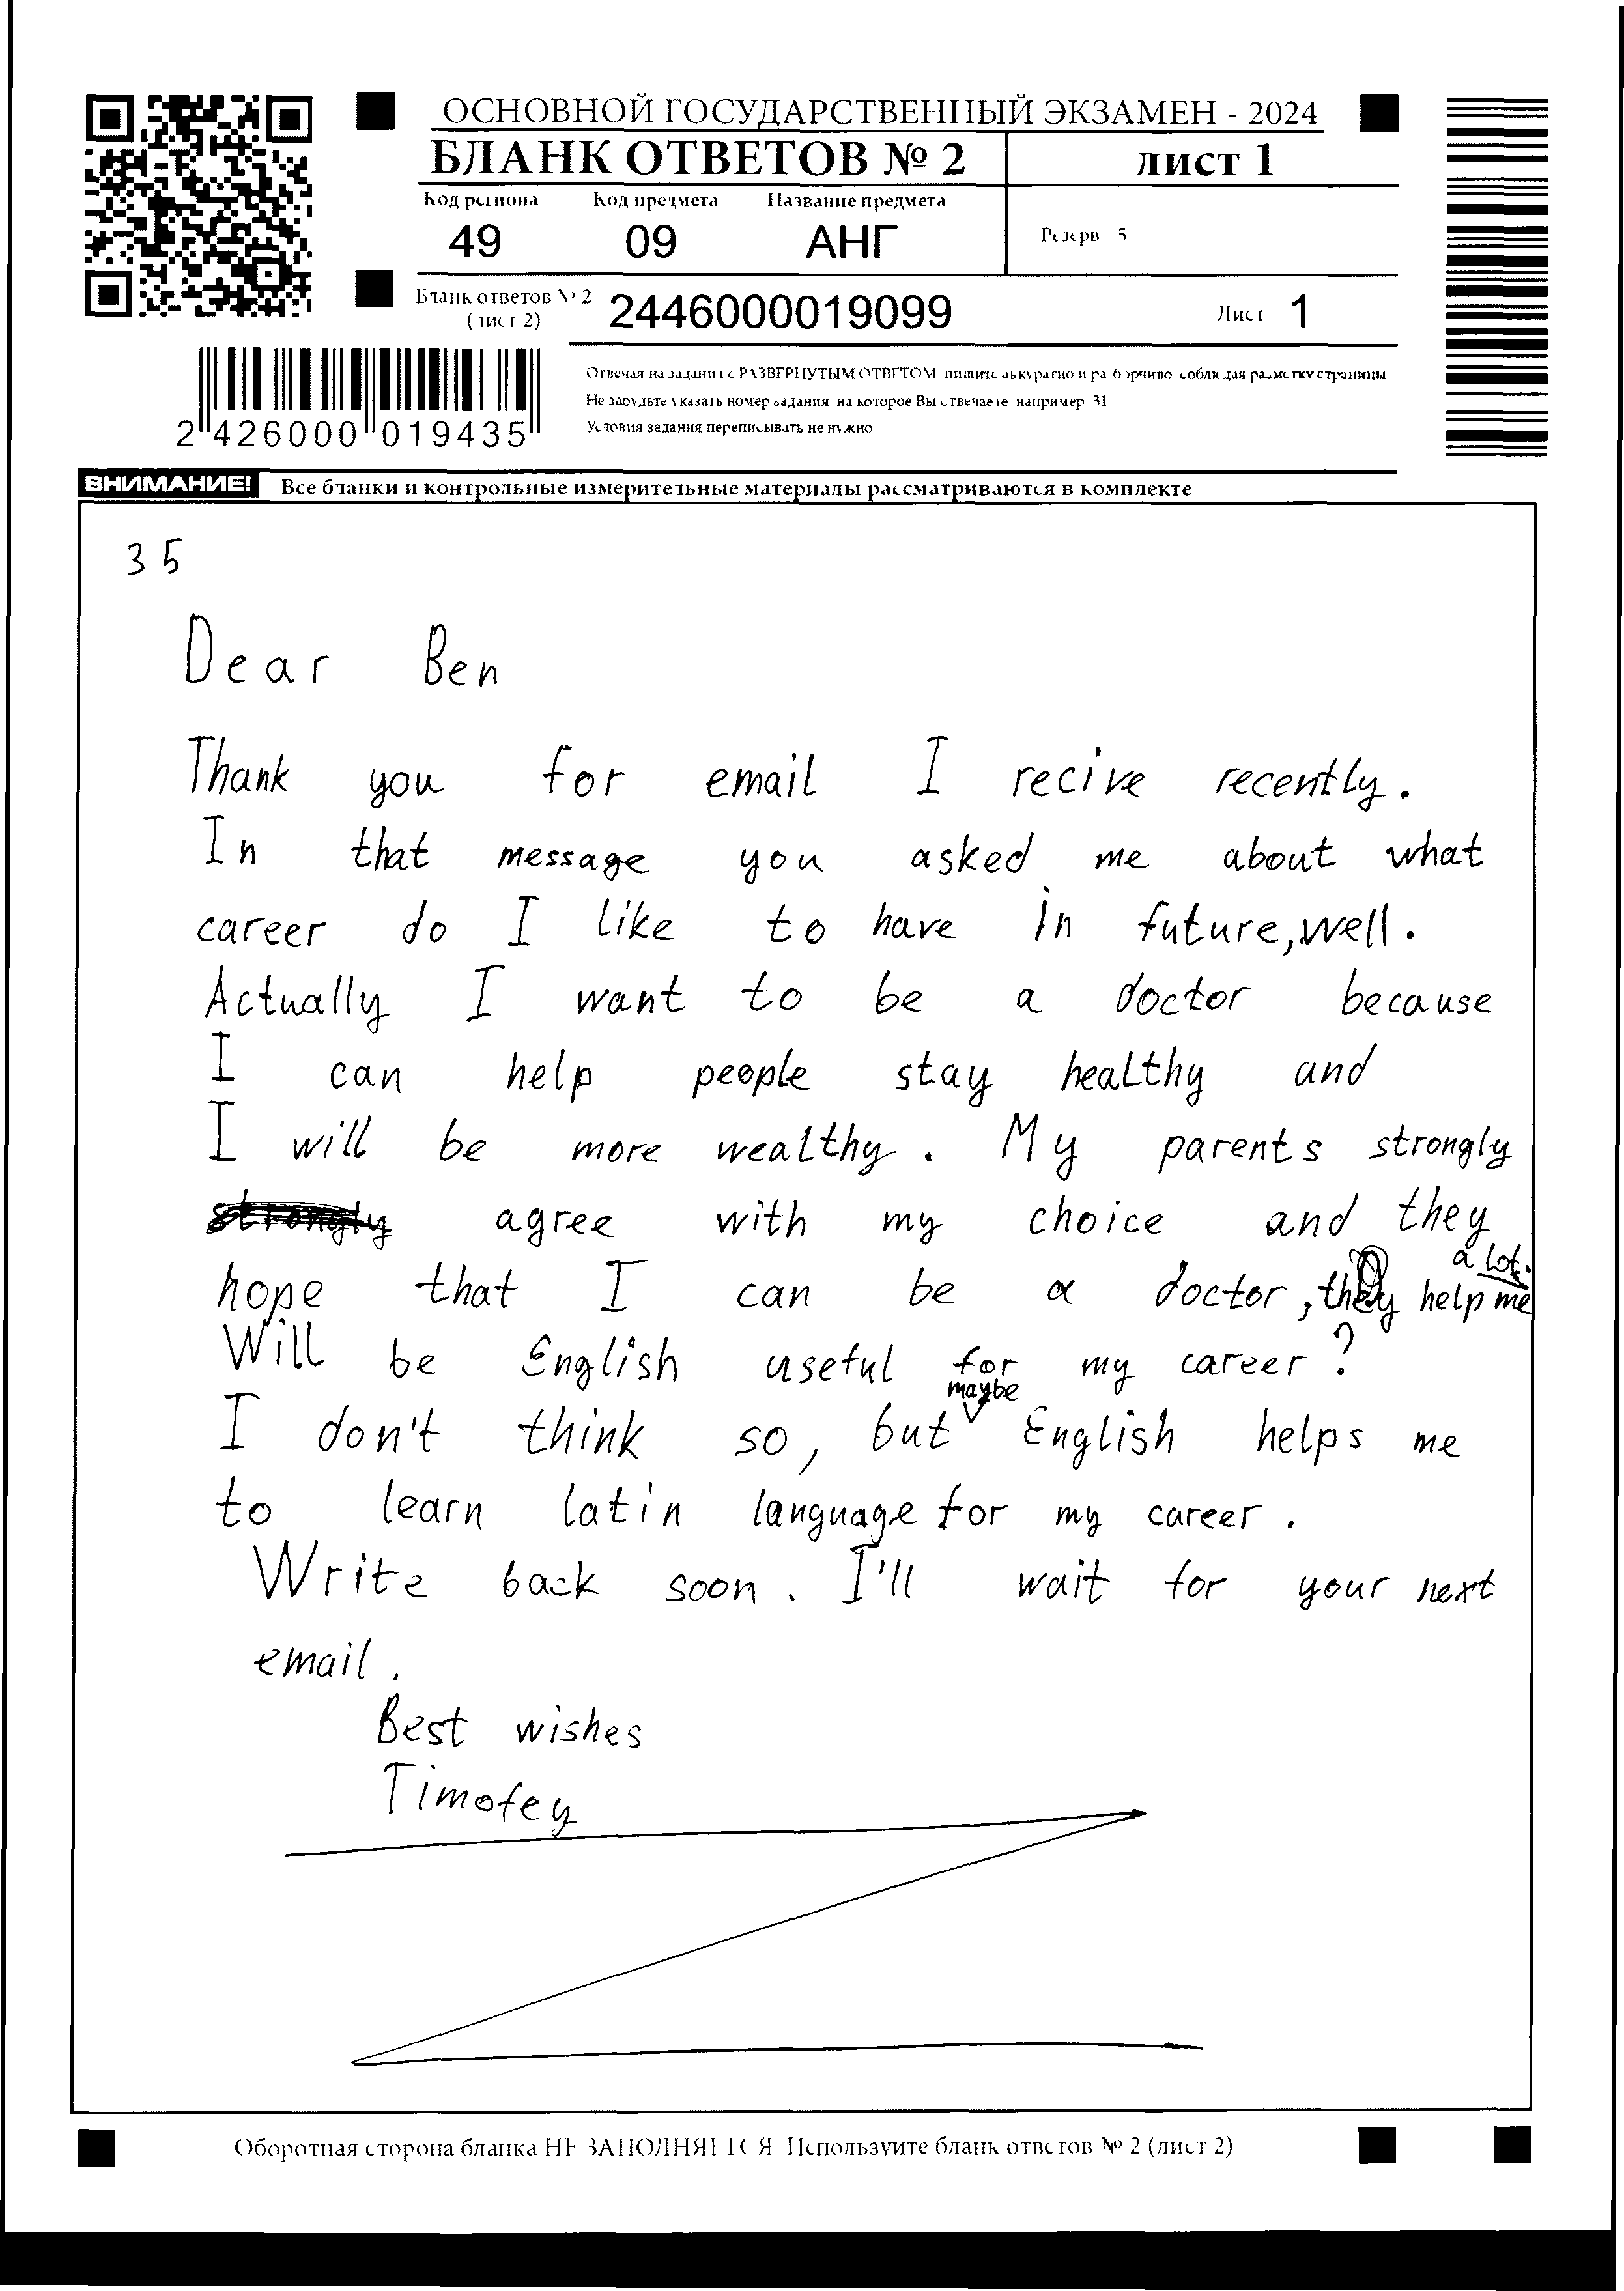 ОСНОВНОЙ ГОСУДАРСТВЕННЫЙ ЭКЗАМЕН - 2024
БЛАНК ОТВЕТОВ № 2 лист 1
Код региона Код предмета Название предмета
49 09 АНГ Резерв 5
Бланк ответов № 2
(лист 2) 2446000019099 Лист 1
Отвечая на задания с РАЗВЕРНУТЫМ ОТВЕТОМ пишите аккуратно и разборчиво соблюдая разметку страницы
Не забудьте указать номер задания на которое Вы отвечаете например 31
Условия задания переписывать не нужно
2 426000 019435
ВНИМАНИЕ! Все бланки и контрольные измерительные материалы рассматриваются в комплекте
35
Dear Ben
Thank you for email I recive recently.
In that message you asked me about what
career do I like to have in future, well.
Actually I want to be a doctor because
I can help people stay healthy and
I will be more wealthy. My parents strongly
strongly agree with my choice and they
hope that I can be a doctor, they help me a lot.
Will be English useful for my career?
I don't think so, but maybe English helps me
to learn latin language for my career.
Write back soon. I'll wait for your next
email.
Best wishes
Timofey
Оборотная сторона бланка НЕ ЗАПОЛНЯЕТСЯ Используйте бланк ответов № 2 (лист 2)